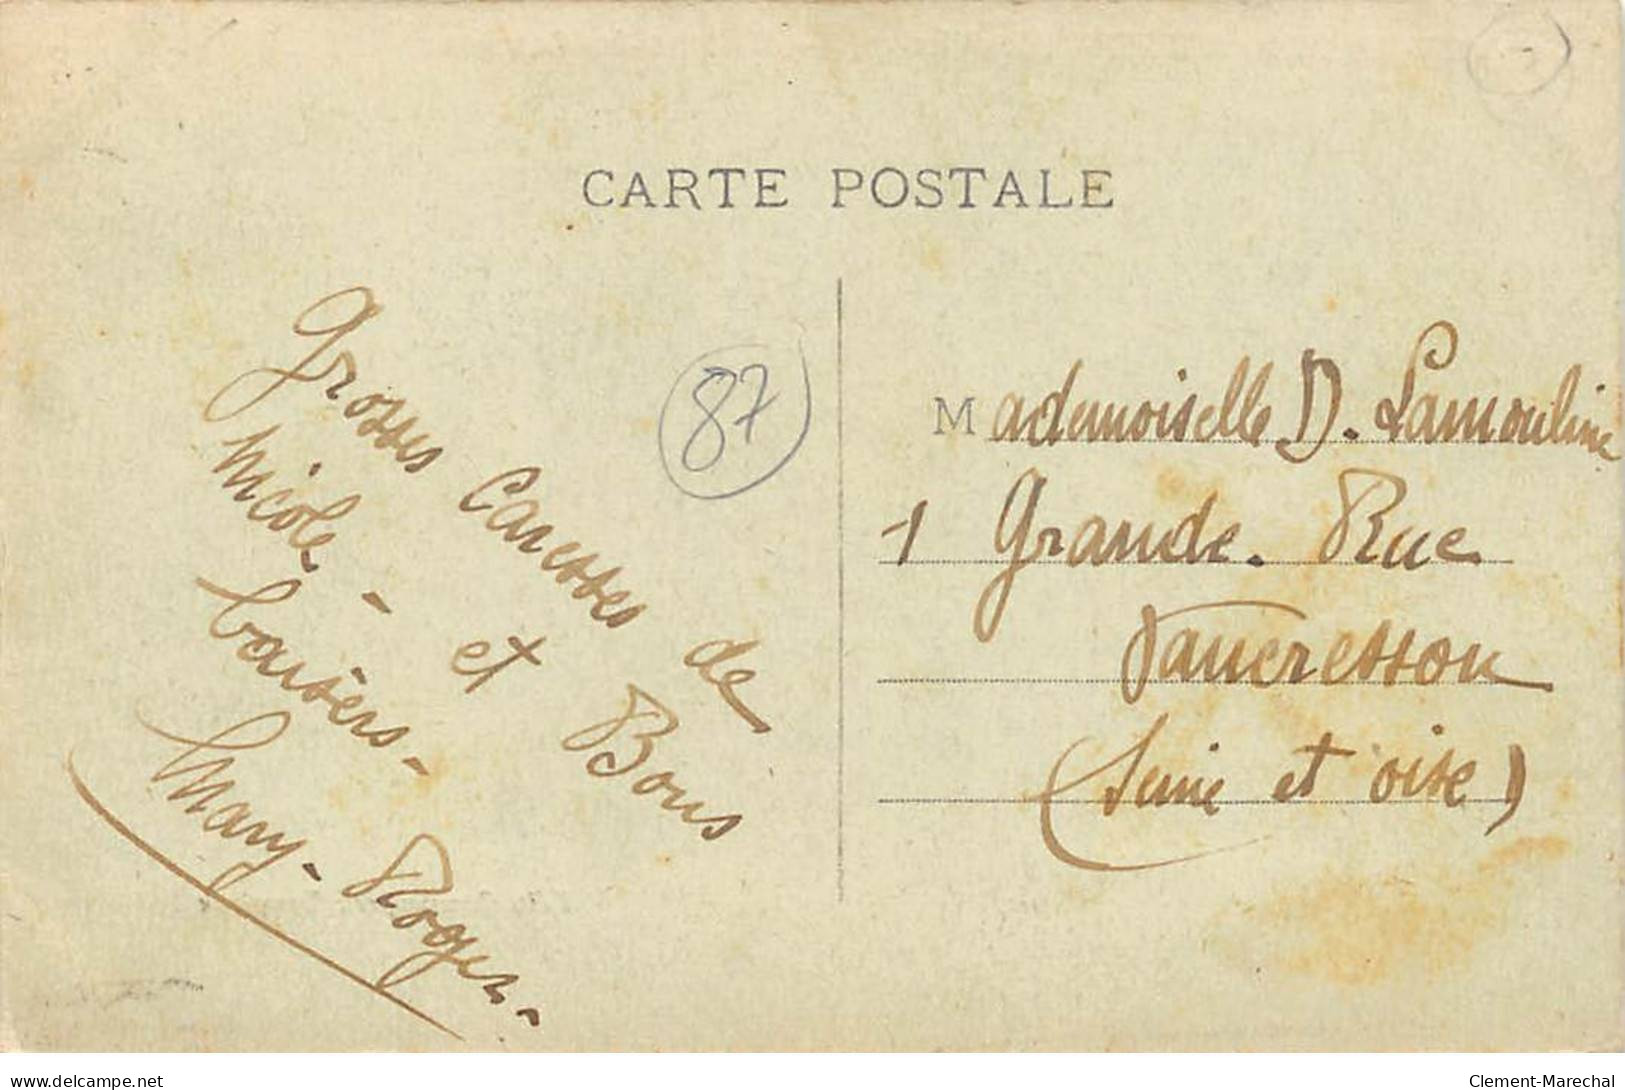 CARTE POSTALE
87
Grosses Caresses de
Nicole - et Bons
baisers -
Mary - Roger -
Mademoiselle D. Lamouline
1 Grande. Rue
Vaucresson
(Seine et oise)
delcampe.net
Clement-Marechal